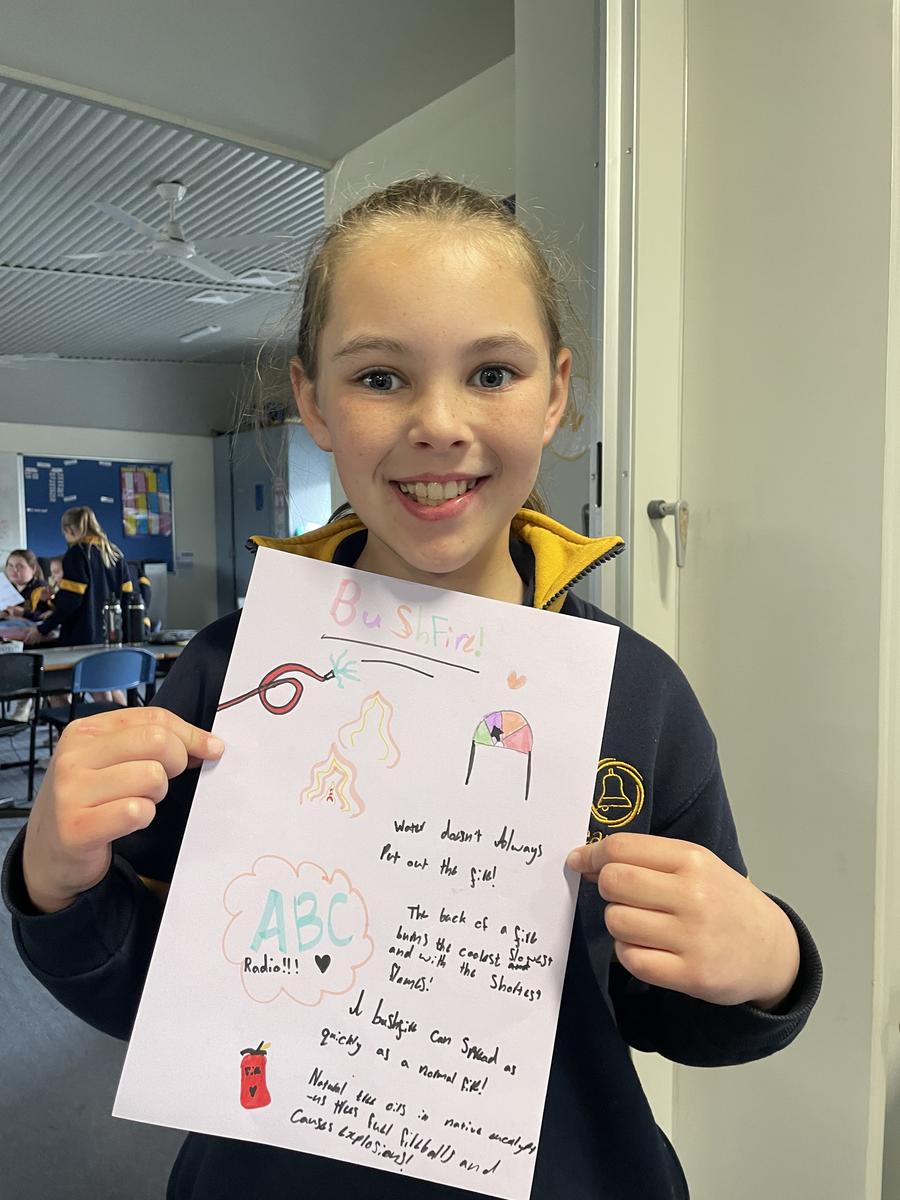 BuShFire!
Water doesn't Always
Put out the fire!
The back of a fire
burns the coolest Slowest
and with the Shortest
flames!
ABC
Radio!!!
A bushfire can Spread as
quickly as a normal fire!
Fire
Natural tree oils in native eucalypt
-us trees fuel fireballs and
Causes explosions!